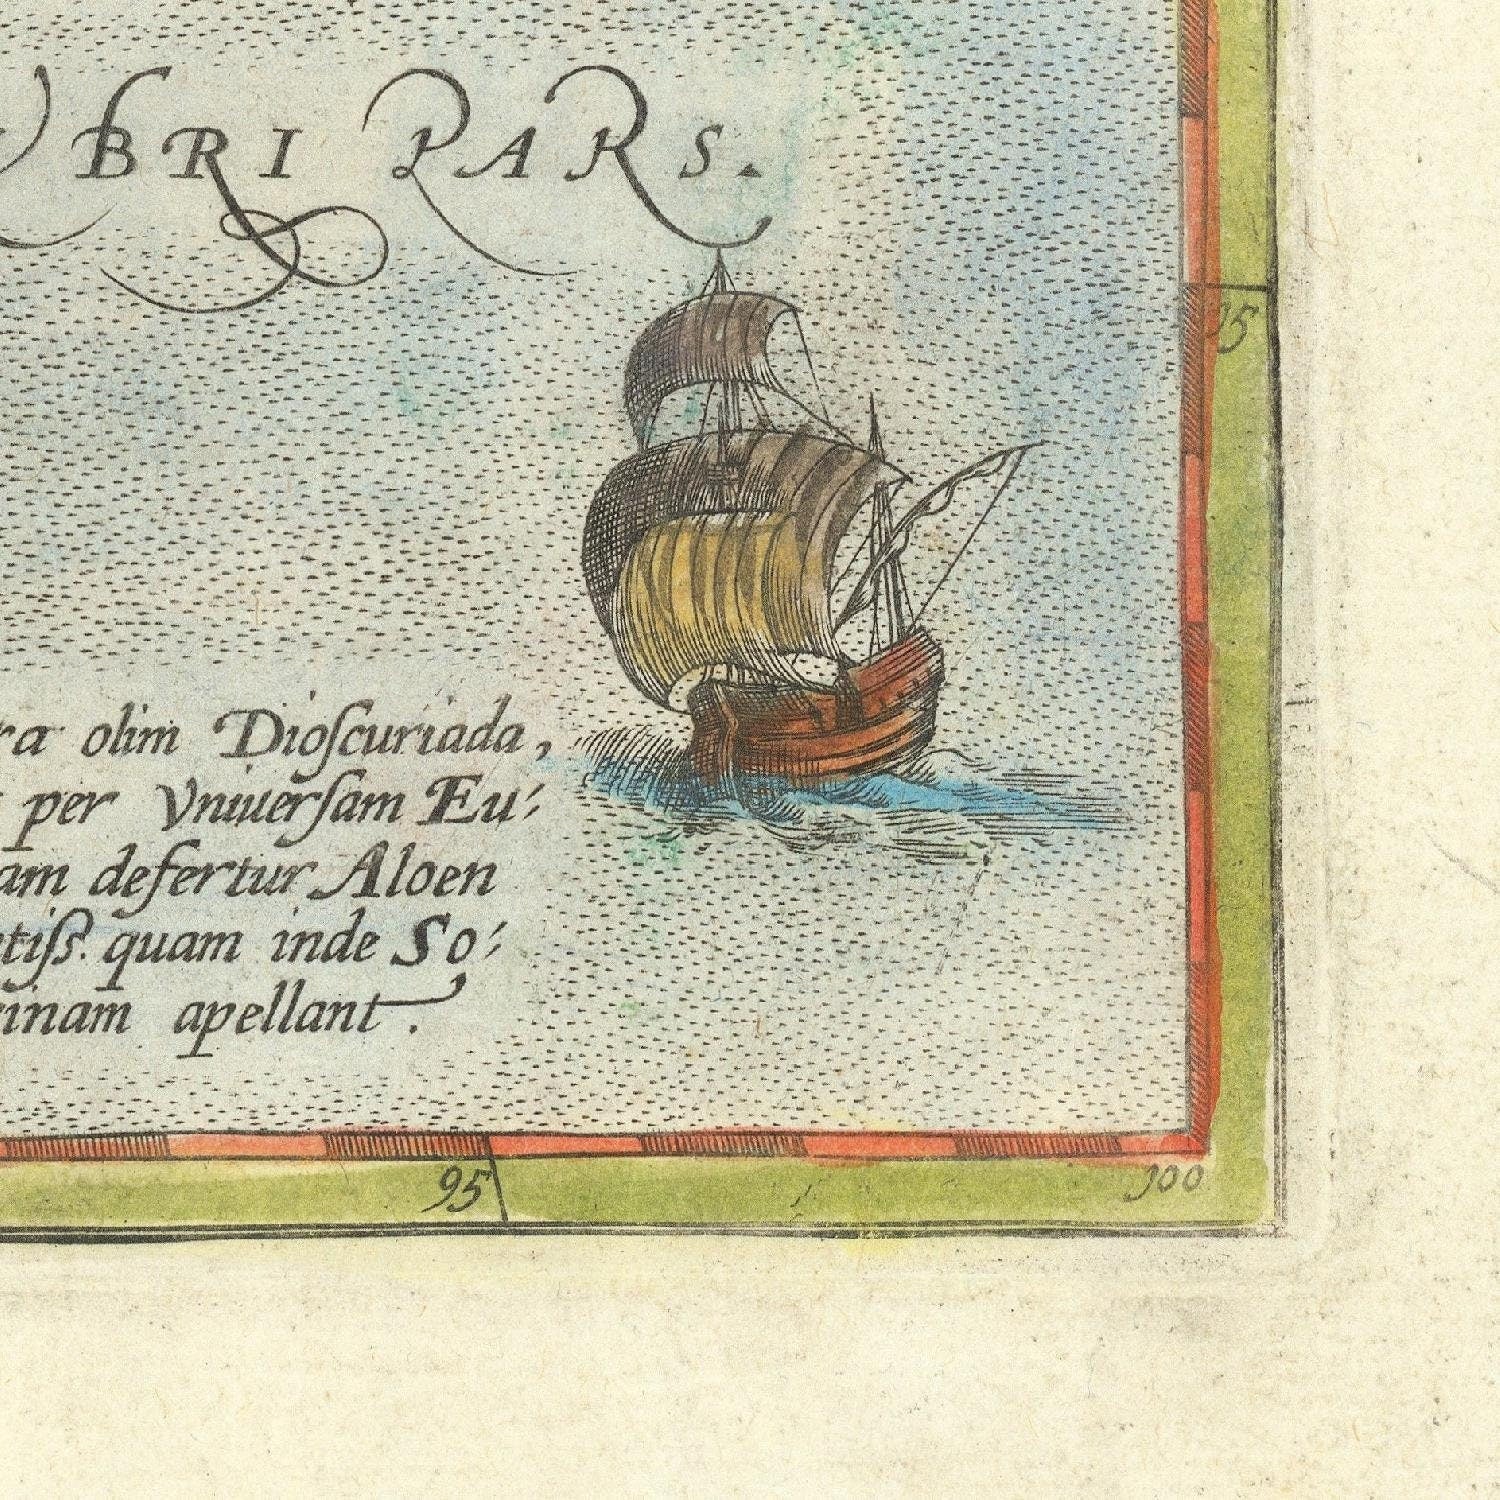 VBRI PARS.
15
ra olim Dioſcuriada,
per Vniuerſam Eu⸗
am defertur Aloen
tiſs. quam inde So⸗
rinam apellant.
95
100